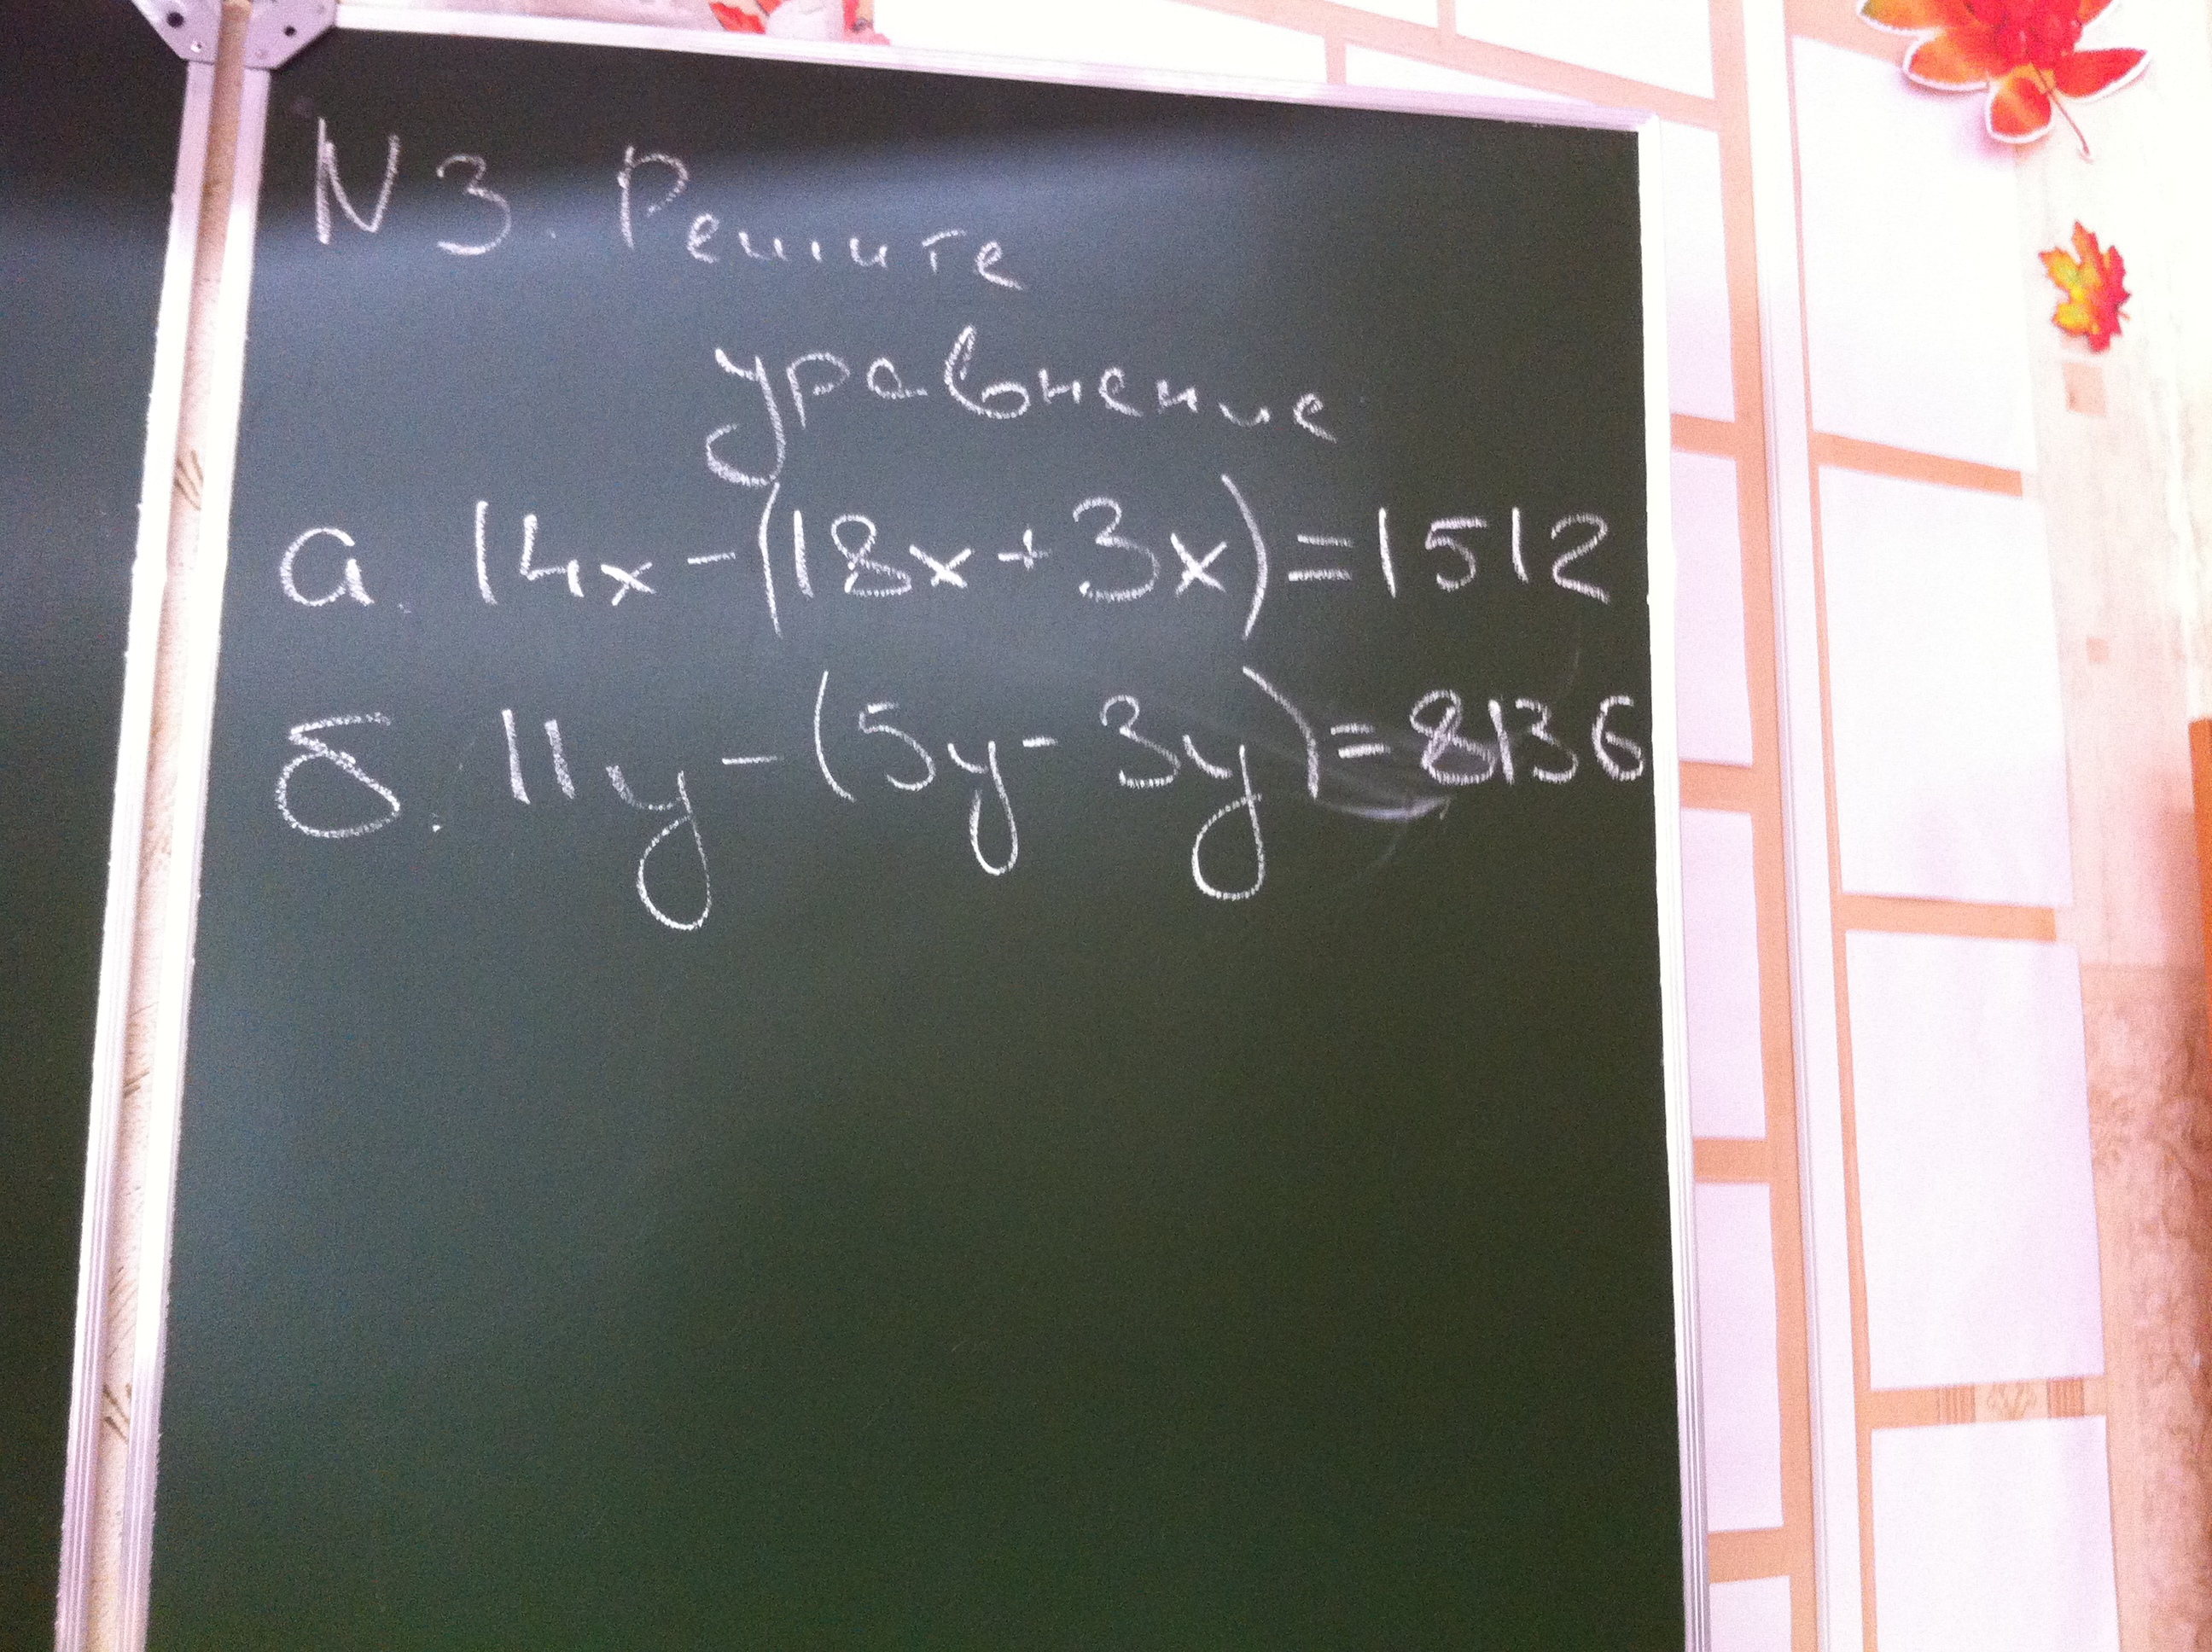 N 3. Решите
уравнение
а. 14x-(18x+3x)=1512
б. 11y-(5y-3y)=8136